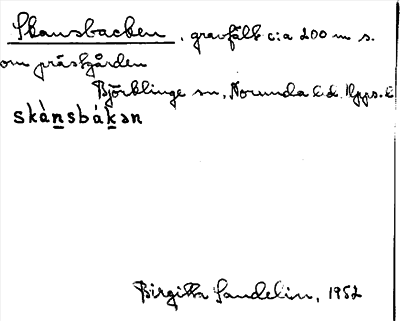 Skansbacken, gravfält c:a 200 m s.
om prästgården
Björklinge sn, Norunda hd. Upps. l.
skànsbákən
Birgitta Sandelin, 1952